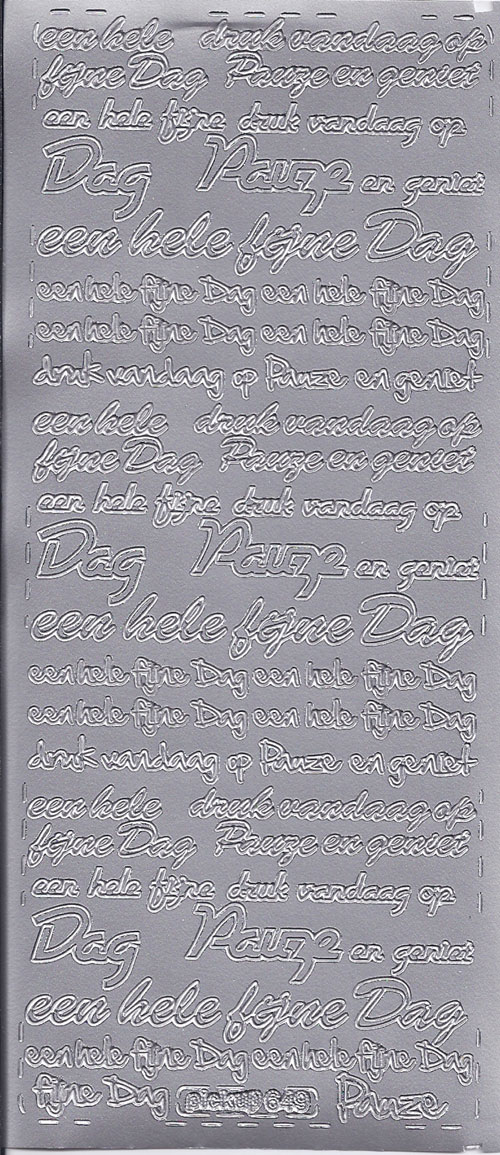 een hele druk vandaag op
fijne Dag Pauze en geniet
een hele fijne druk vandaag op
Dag Pauze en geniet
een hele fijne Dag
een hele fijne Dag een hele fijne Dag
een hele fijne Dag een hele fijne Dag
druk vandaag op Pauze en geniet
een hele druk vandaag op
fijne Dag Pauze en geniet
een hele fijne druk vandaag op
Dag Pauze en geniet
een hele fijne Dag
een hele fijne Dag een hele fijne Dag
een hele fijne Dag een hele fijne Dag
druk vandaag op Pauze en geniet
een hele druk vandaag op
fijne Dag Pauze en geniet
een hele fijne druk vandaag op
Dag Pauze en geniet
een hele fijne Dag
een hele fijne Dag een hele fijne Dag
fijne Dag pickup 649 Pauze